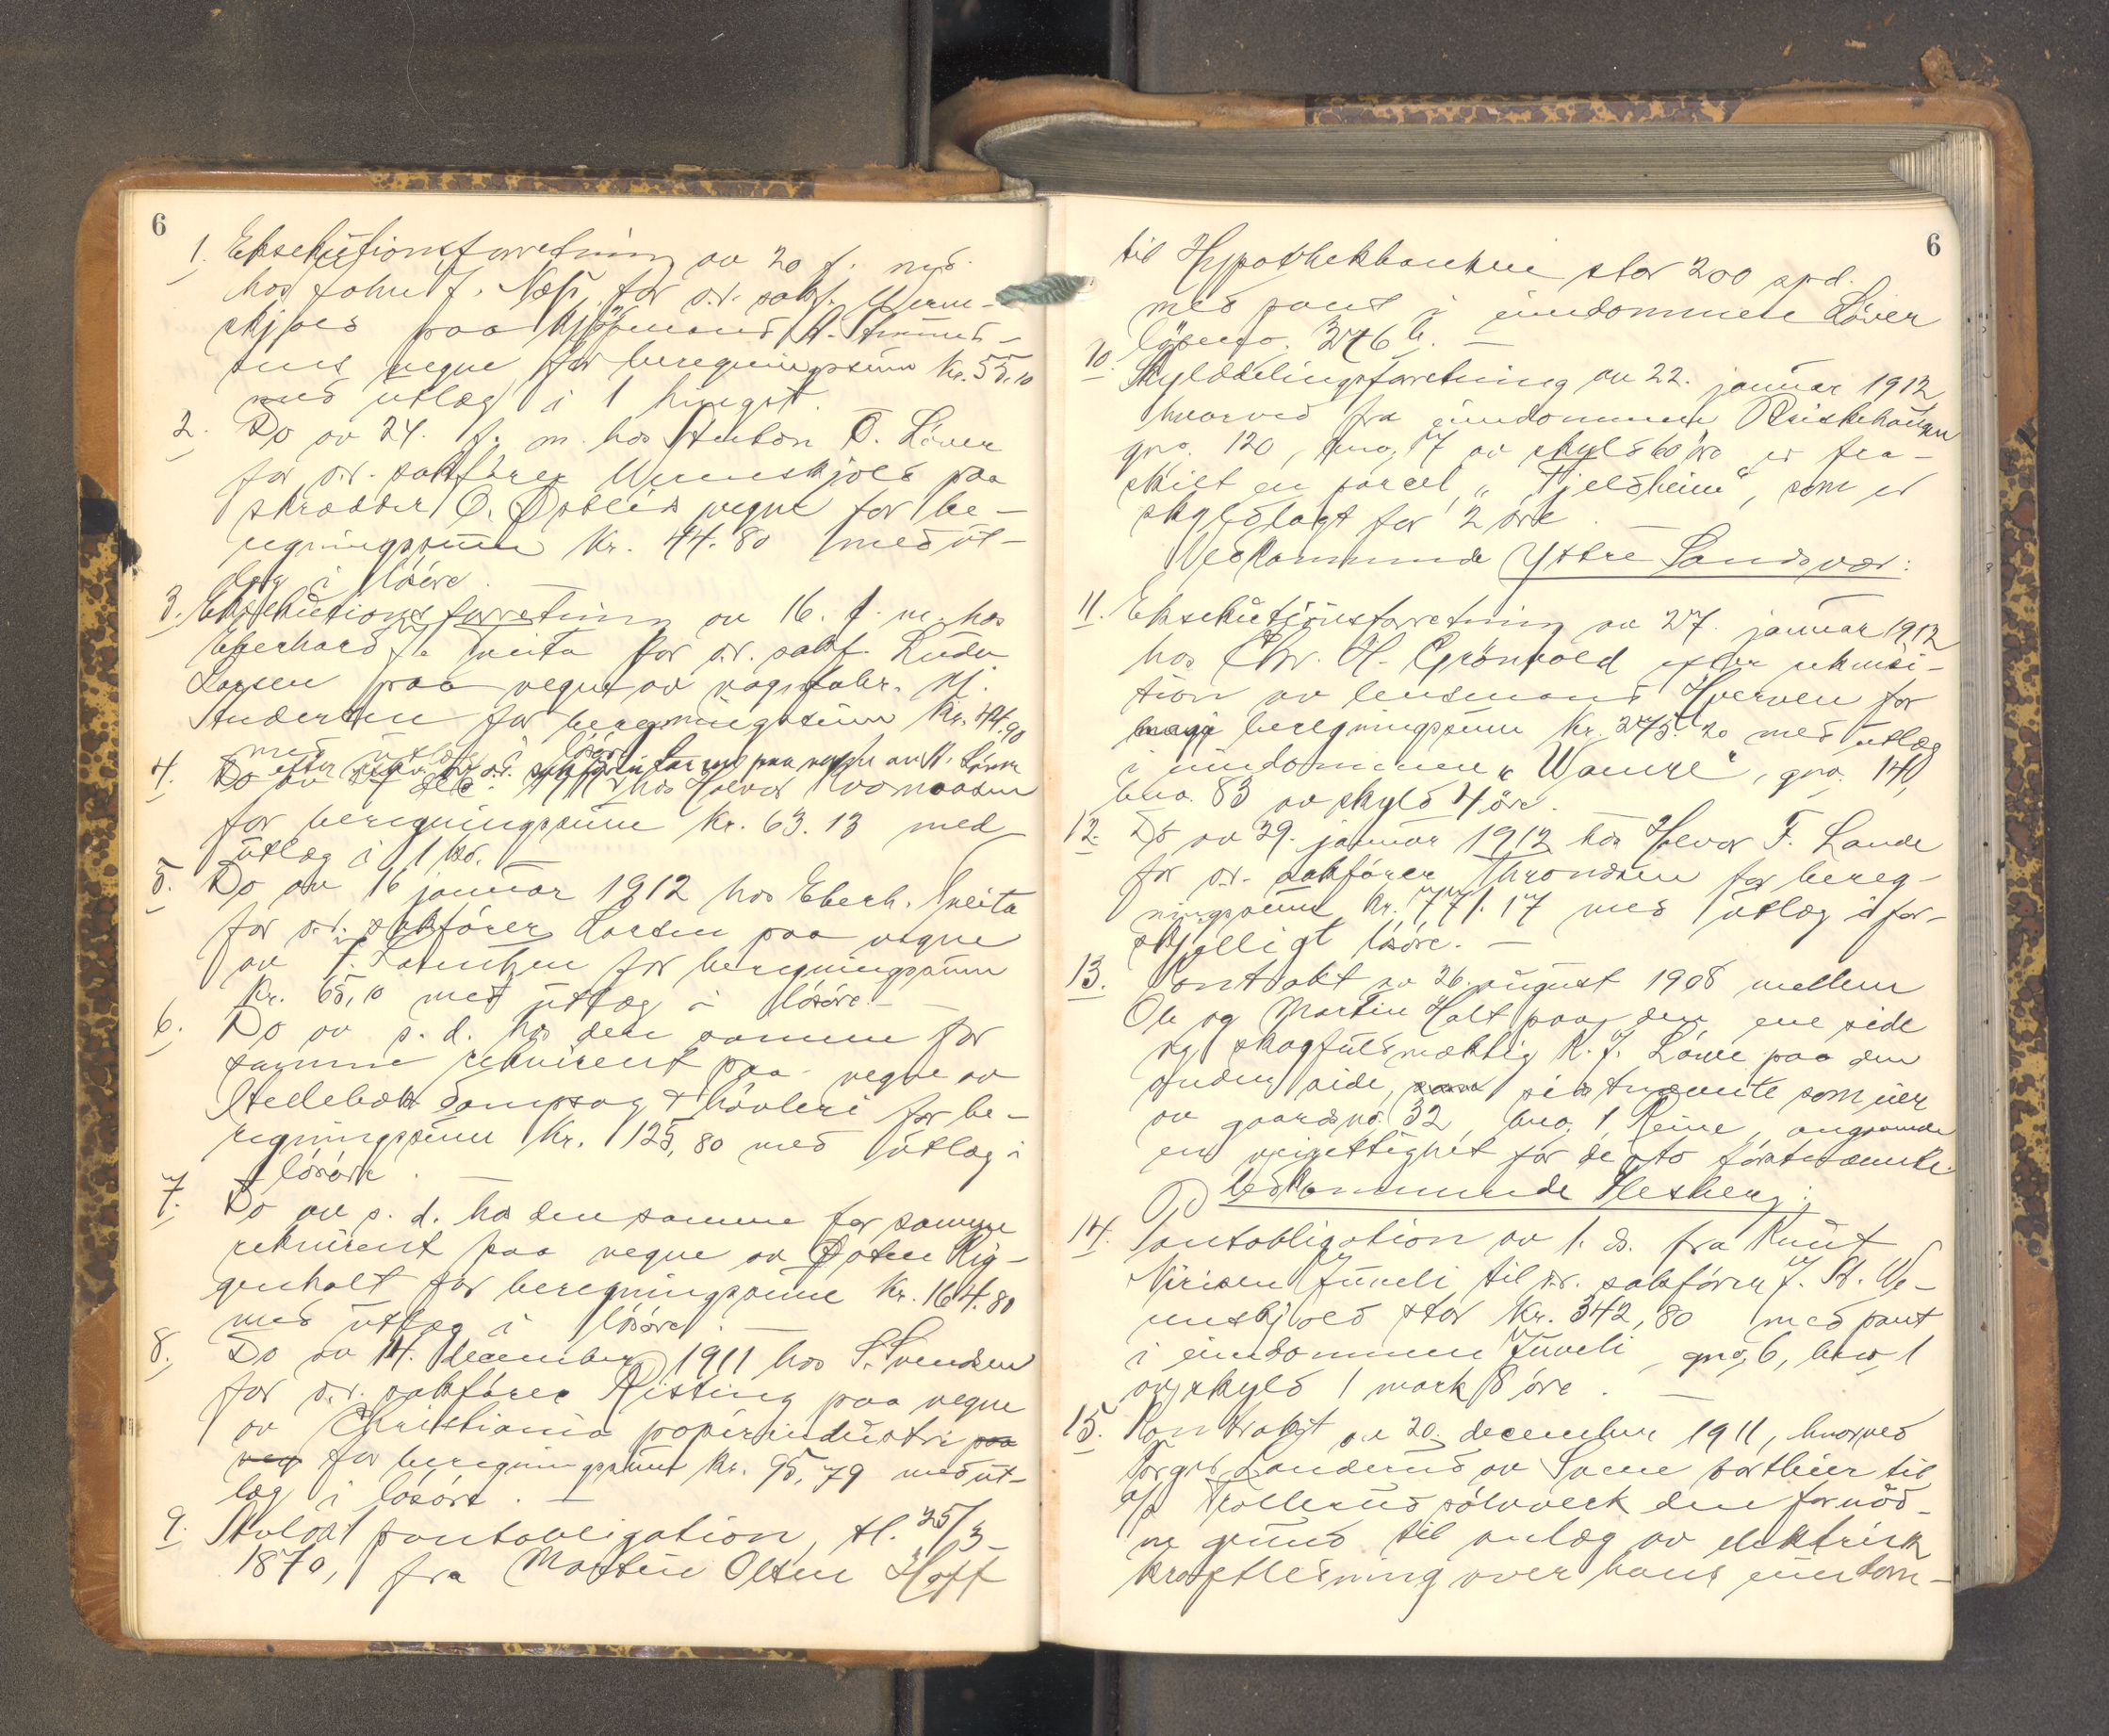 6
1. Eksekutionsforretning av 20 f. mnd.
hos John J. Næss for o.r. sakf. Wenn-
skjold paa kjöpmand A. Amund-
sens vegne for beregningssum kr. 55.10
med utlæg i 1 hingst.
2. Do av 24. f. m. hos Anton O. Löver
for o.r. sakförer Wennskjold paa
skrædder O. vegne for be-
regningssum kr. 44.80 med ut-
læg i lösöre.
3. Eksekutionsforretning av 16. f. m. hos
Eberhard Sneita for o.r. sakf. Ludv.
Larsen paa vegne av vognfabr. Kj.
Andersen for beregningssum kr. 44.90
med utlæg i lösöre
4. Do av 27 dec. 1911 hos Halvor Kvomoosen
for beregningssum kr. 63.13 med
utlæg i 1 ko.
5. Do av 16 januar 1912 hos Eberh. Sneita
for o.r. sakförer Larsen paa vegne
av F. Lorentzen for beregningssum
kr. 65,10 med utlæg i lösöre. –
6. Do av s. d. hos den samme for
samme rekvirent paa vegne av
Stellebæk Dampsag & hövleri for be-
regningssum kr. 125,80 med utlæg i
lösöre.
7. Do av s. d. hos den samme for samme
rekvirent paa vegne av Rig-
genholt for beregningssum kr. 164.80
med utlæg i lösöre. –
8. Do av 14. december 1911 hos S. Svendsen
for o.r. sakförer Risting paa vegne
av Christiania papirindustri paa
veg for beregningssum kr. 95,79 med ut-
læg i lösöre. –
9. pantobligation, tl. 25/3-
1870, fra Martin Olsen Hoff
6
til Hypothekbanken stor 200 spd.
med pant i eiendommen Löver
löpeno. 376 b. –
10. Skylddelingsforretning av 22. januar 1912
hvorved fra eiendommen
gno. 120, bno. 7 av skyld 60 öre er fra-
skilt en parcel, "Fjeldheim", som er
skyldlagt for 2 öre.
Vedkommende Yttre Sandsvær:
11. Eksekutionsforretning av 27. januar 1912
hos Chr. H. Grönvold efter rekvisi-
tion av lensmand Hverven for
beregningssum kr. 275.20 med utlæg
i eiendommen " ", gno. 140,
bno. 83 av skyld 4 öre.
12. Do av 29. januar 1912 hos Halvor F. Lande
for o.r. sakförer Throndsen for bereg-
ningssum kr. 771.17 med utlæg i for-
skjelligt lösöre. –
13. Kontrakt av 26. august 1908 mellem
Ole og Martin Holt paa den ene side
og skogfuldmægtig K. J. Löwe paa den
anden side, som sidstnævnte som eier
av gaardsno. 32, bno. 1 Reine, angaaende
en veirettighet for de to förstnævnte.
Vedkommende Flesberg:
14. Pantobligation av 1. ds. fra Knut
Nirisen Juveli til o.r. sakförer J. St. We-
nnskjold stor kr. 342,80 med pant
i eiendommen Juveli, gno. 6, bno. 1
av skyld 1 mark 8 öre. –
15. Kontrakt av 20. december 1911, hvorved
Torger Landerud av Svene bortleier til
a/s Trollerud sölvverk den fornöd-
ne grund til anlæg av elektrisk
kraftledning over hans eiendom-